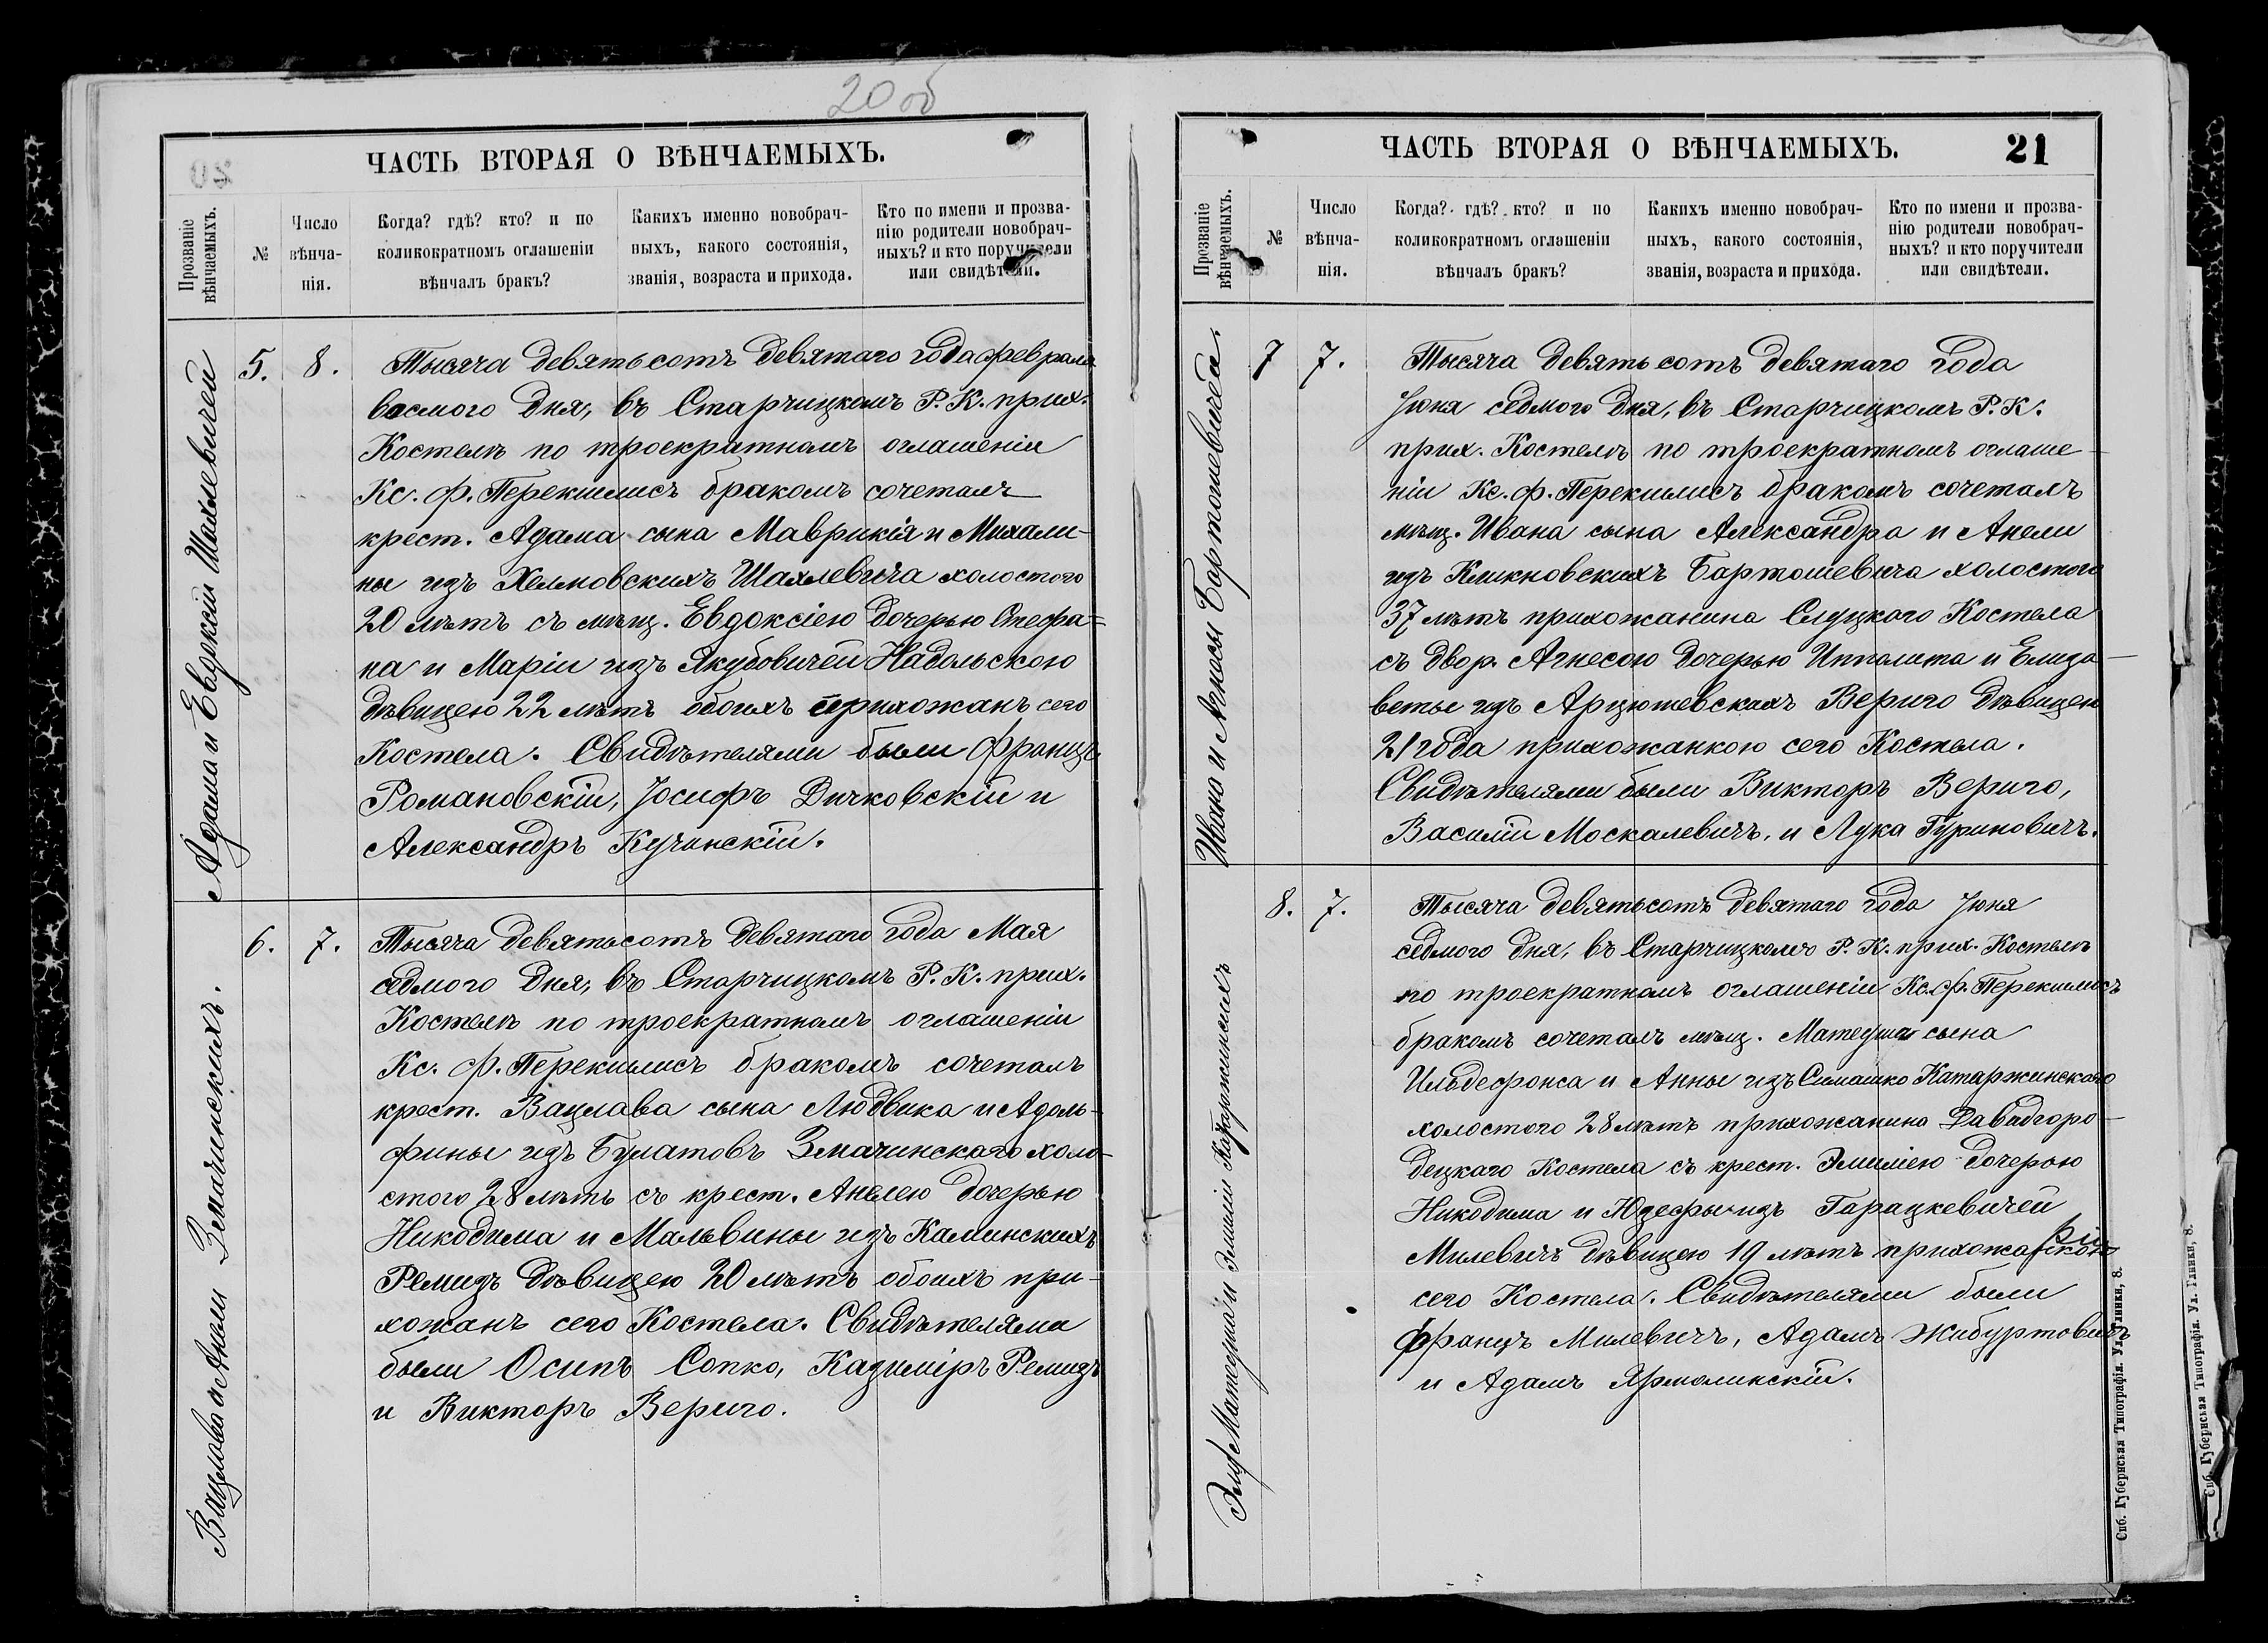 20 об
ЧАСТЬ ВТОРАЯ О ВѢНЧАЕМЫХЪ.
Прозваніе
вѣнчаемыхъ.
№
Число
вѣнча-
нія.
Когда? гдѣ? кто? и по
коликократномъ оглашеніи
вѣнчалъ бракъ?
Какихъ именно новобрач-
ныхъ, какого состоянія,
званія, возраста и прихода.
Кто по имени и прозва-
нію родители новобрач-
ныхъ? и кто поручители
или свидѣтели.
Адама и Евдокіи Шахлевичей
5. 8.
Тысяча девятьсотъ девятаго года февраля
васмого дня, въ Старчицкомъ Р. К. прих.
Костелѣ по троекратномъ оглашеніи
Кс. Ф. Перекшлисъ бракомъ сочеталъ
крест. Адама сына Маврикія и Михали-
ны изъ Хелмовскихъ Шахлевича холостого
20 лѣтъ съ мѣщ. Евдоксіею дочерью Стефа=
на и Маріи изъ Якубовичей Надольскою
дѣвицею 22 лѣтъ обоихъ прихожанъ сего
Костела. Свидѣтелями были Францъ
Романовскій, Іосифъ Дичковскій и
Александръ Кучинскій.
Вацлава и Анели Змачинскихъ.
6. 7.
Тысяча девятьсотъ девятаго года Мая
седмого дня, въ Старчицкомъ Р. К. прих.
Костелѣ по троекратномъ оглашеніи
Кс. Ф. Перекшлисъ бракомъ сочеталъ
крест. Вацлава сына Людвика и Адоль-
фины изъ Булатовъ Змачинскаго холо-
стого 28 лѣтъ съ крест. Анелею дочерью
Никодима и Мальвины изъ Калинскихъ
Ремизъ дѣвицею 20 лѣтъ обоихъ при-
хожанъ сего Костела. Свидѣтелями
были Осипъ Сопко, Казиміръ Ремизъ
и Викторъ Вериго.
ЧАСТЬ ВТОРАЯ О ВѢНЧАЕМЫХЪ.
21
Прозваніе
вѣнчаемыхъ.
№
Число
вѣнча-
нія.
Когда? гдѣ? кто? и по
коликократномъ оглашеніи
вѣнчалъ бракъ?
Какихъ именно новобрач-
ныхъ, какого состоянія,
званія, возраста и прихода.
Кто по имени и прозва-
нію родители новобрач-
ныхъ? и кто поручители
или свидѣтели.
Ивана и Агнесы Бартошевичей.
7 7.
Тысяча девятьсотъ девятаго года
Іюня седмого дня, въ Старчицкомъ Р. К.
прих. Костелѣ по троекратномъ оглаше-
ніи Кс. Ф. Перекшлисъ бракомъ сочеталъ
мѣщ. Ивана сына Александра и Анели
изъ Кликновскихъ Бартошевича холостого
37 лѣтъ прихожанина Слуцкого Костела
съ двор. Агнесою дочерью Ипполита и Елиза-
веты изъ Арцюшевскихъ Вериго дѣвицею
21 года прихожанкою сего Костела.
Свидѣтелями были Викторъ Вериго,
Василій Москалевичъ, и Лука Гуриновичъ.
Матеуша и Эмиліи Катаржинскихъ
8. 7.
Тысяча девятьсотъ девятаго года Іюня
седмого дня, въ Старчицкомъ Р. К. прих. Костелѣ
по троекратномъ оглашеніи Кс. Ф. Перекшлисъ
бракомъ сочеталъ мѣщ. Матеуша сына
Ильдефонса и Анны изъ Симашко Катаржинскаго
холостого 28 лѣтъ прихожанина Давидгоро-
децкаго Костела съ крест. Эмиліею дочерью
Никодима и Юзефы изъ Гарацкевичей
Милевичъ дѣвицею 19 лѣтъ прихожанкою
сего Костела. Свидѣтелями были
Францъ Милевичъ, Адамъ Жибуртовичъ
и Адамъ Ярмолинскій.
Спб. Губернская Типографія. Ул. Глинки, 8.
Спб. Губернская Типографія. Ул. Глинки, 8.